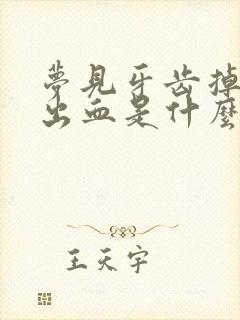 夢見牙齿掉
出血是什麼
王天宇